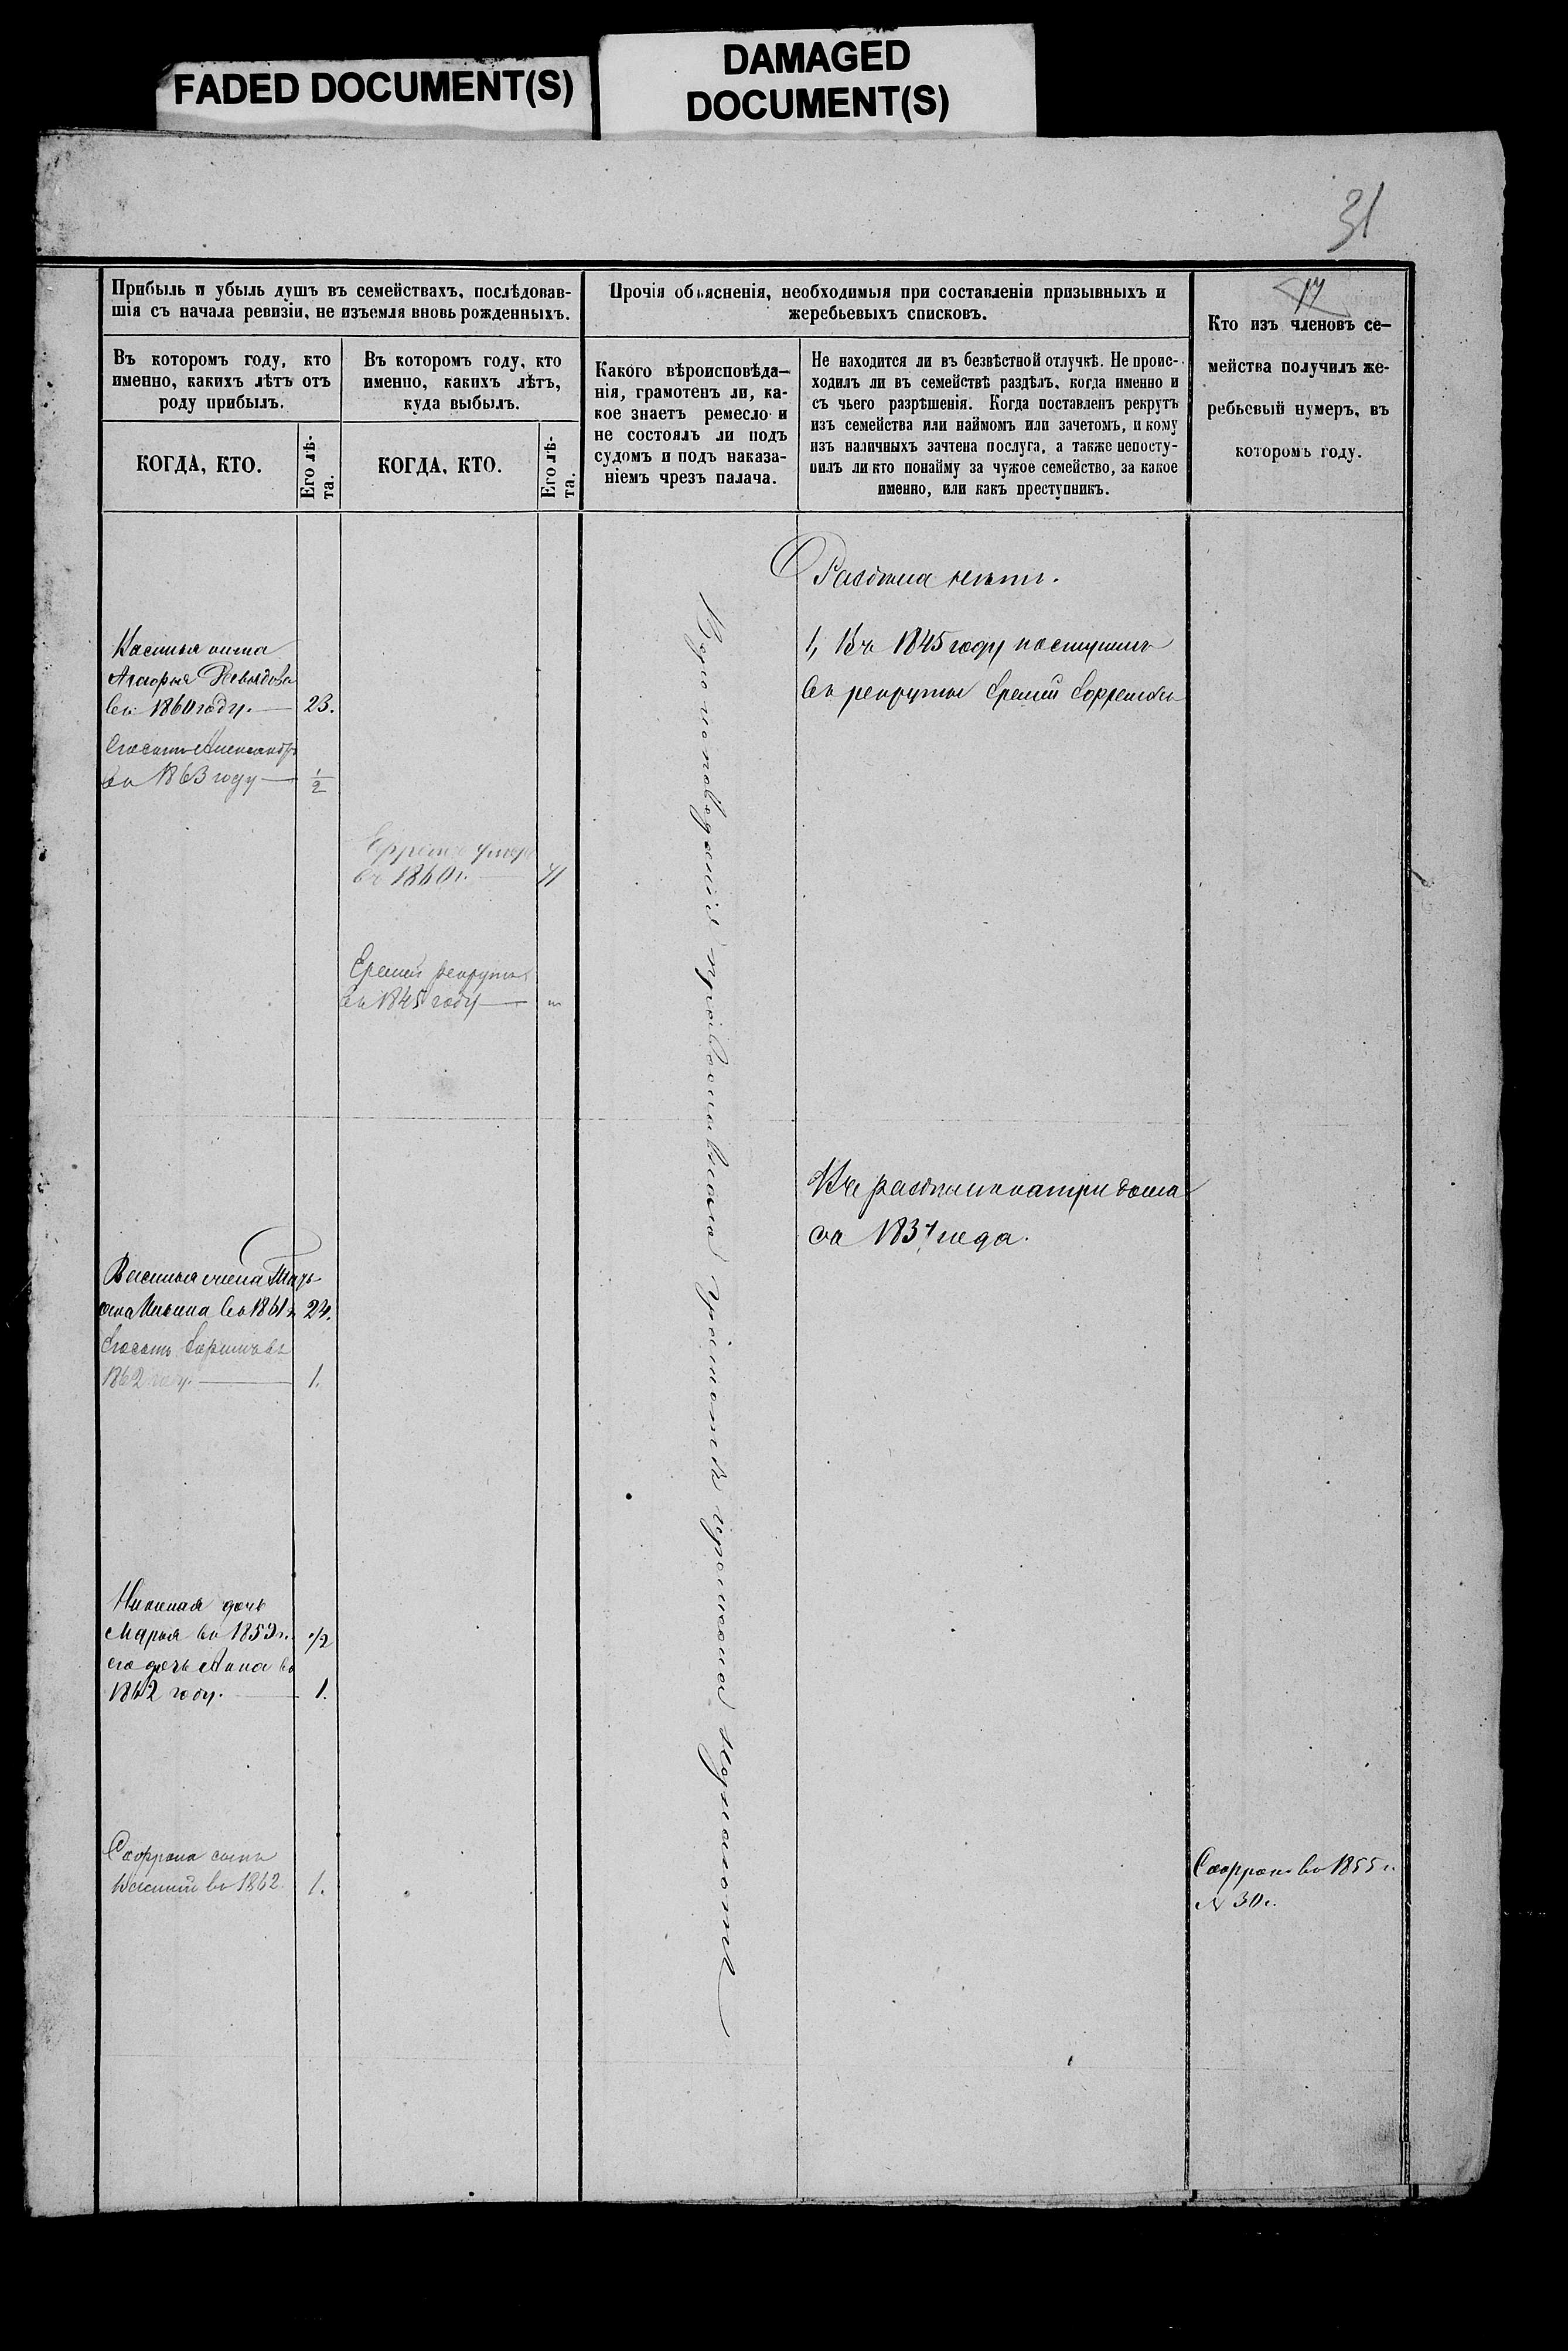 FADED DOCUMENT(S)
DAMAGED
DOCUMENT(S)
31
Прибыль и убыль душъ въ семействахъ, послѣдовав-
шія съ начала ревизіи, не изъемля вновь рожденныхъ.
Въ которомъ году, кто
именно, какихъ лѣтъ отъ
роду прибылъ.
КОГДА, КТО.
Его лѣ-
та.
Въ которомъ году, кто
именно, какихъ лѣтъ,
куда выбылъ.
КОГДА, КТО.
Его лѣ-
та.
Прочія объясненія, необходимыя при составленіи призывныхъ и
жеребьевыхъ списковъ.
Какого вѣроисповѣда-
нія, грамотенъ ли, ка-
кое знаетъ ремесло и
не состоялъ ли подъ
судомъ и подъ наказа-
ніемъ чрезъ палача.
Не находится ли въ безвѣстной отлучкѣ. Не проис-
ходилъ ли въ семействѣ раздѣлъ, когда именно и
съ чьего разрѣшенія. Когда поставленъ рекрутъ
изъ семейства или наймомъ или зачетомъ, и кому
изъ наличныхъ зачтена послуга, а также непосту-
пилъ ли кто понайму за чужое семейство, за какое
именно, или какъ преступникъ.
17
Кто изъ членовъ се-
мейства получилъ же-
ребьевый нумеръ, въ
которомъ году.
въ 1860 году. 23.
Его сынъ Александръ
въ 1863 году 1/2
умеръ
въ 1860 г.
Еремей рекрутъ
въ 1845 году "
Василья жена
Ильина въ 1861 г. 24.
Его сынъ
1862 году. 1.
дочь
Марья въ 1859 г. 1/2
его дочь Анна въ
1862 году. 1.
Софрона сынъ
Василий въ 1862 1.
Вероисповеданія православнаго грамоте
Раздела нетъ.
1, Въ 1845 году поступилъ
въ рекруты Еремей
Въ разделе на три дома
съ года.
Софронъ въ 1855 г.
№ 30.